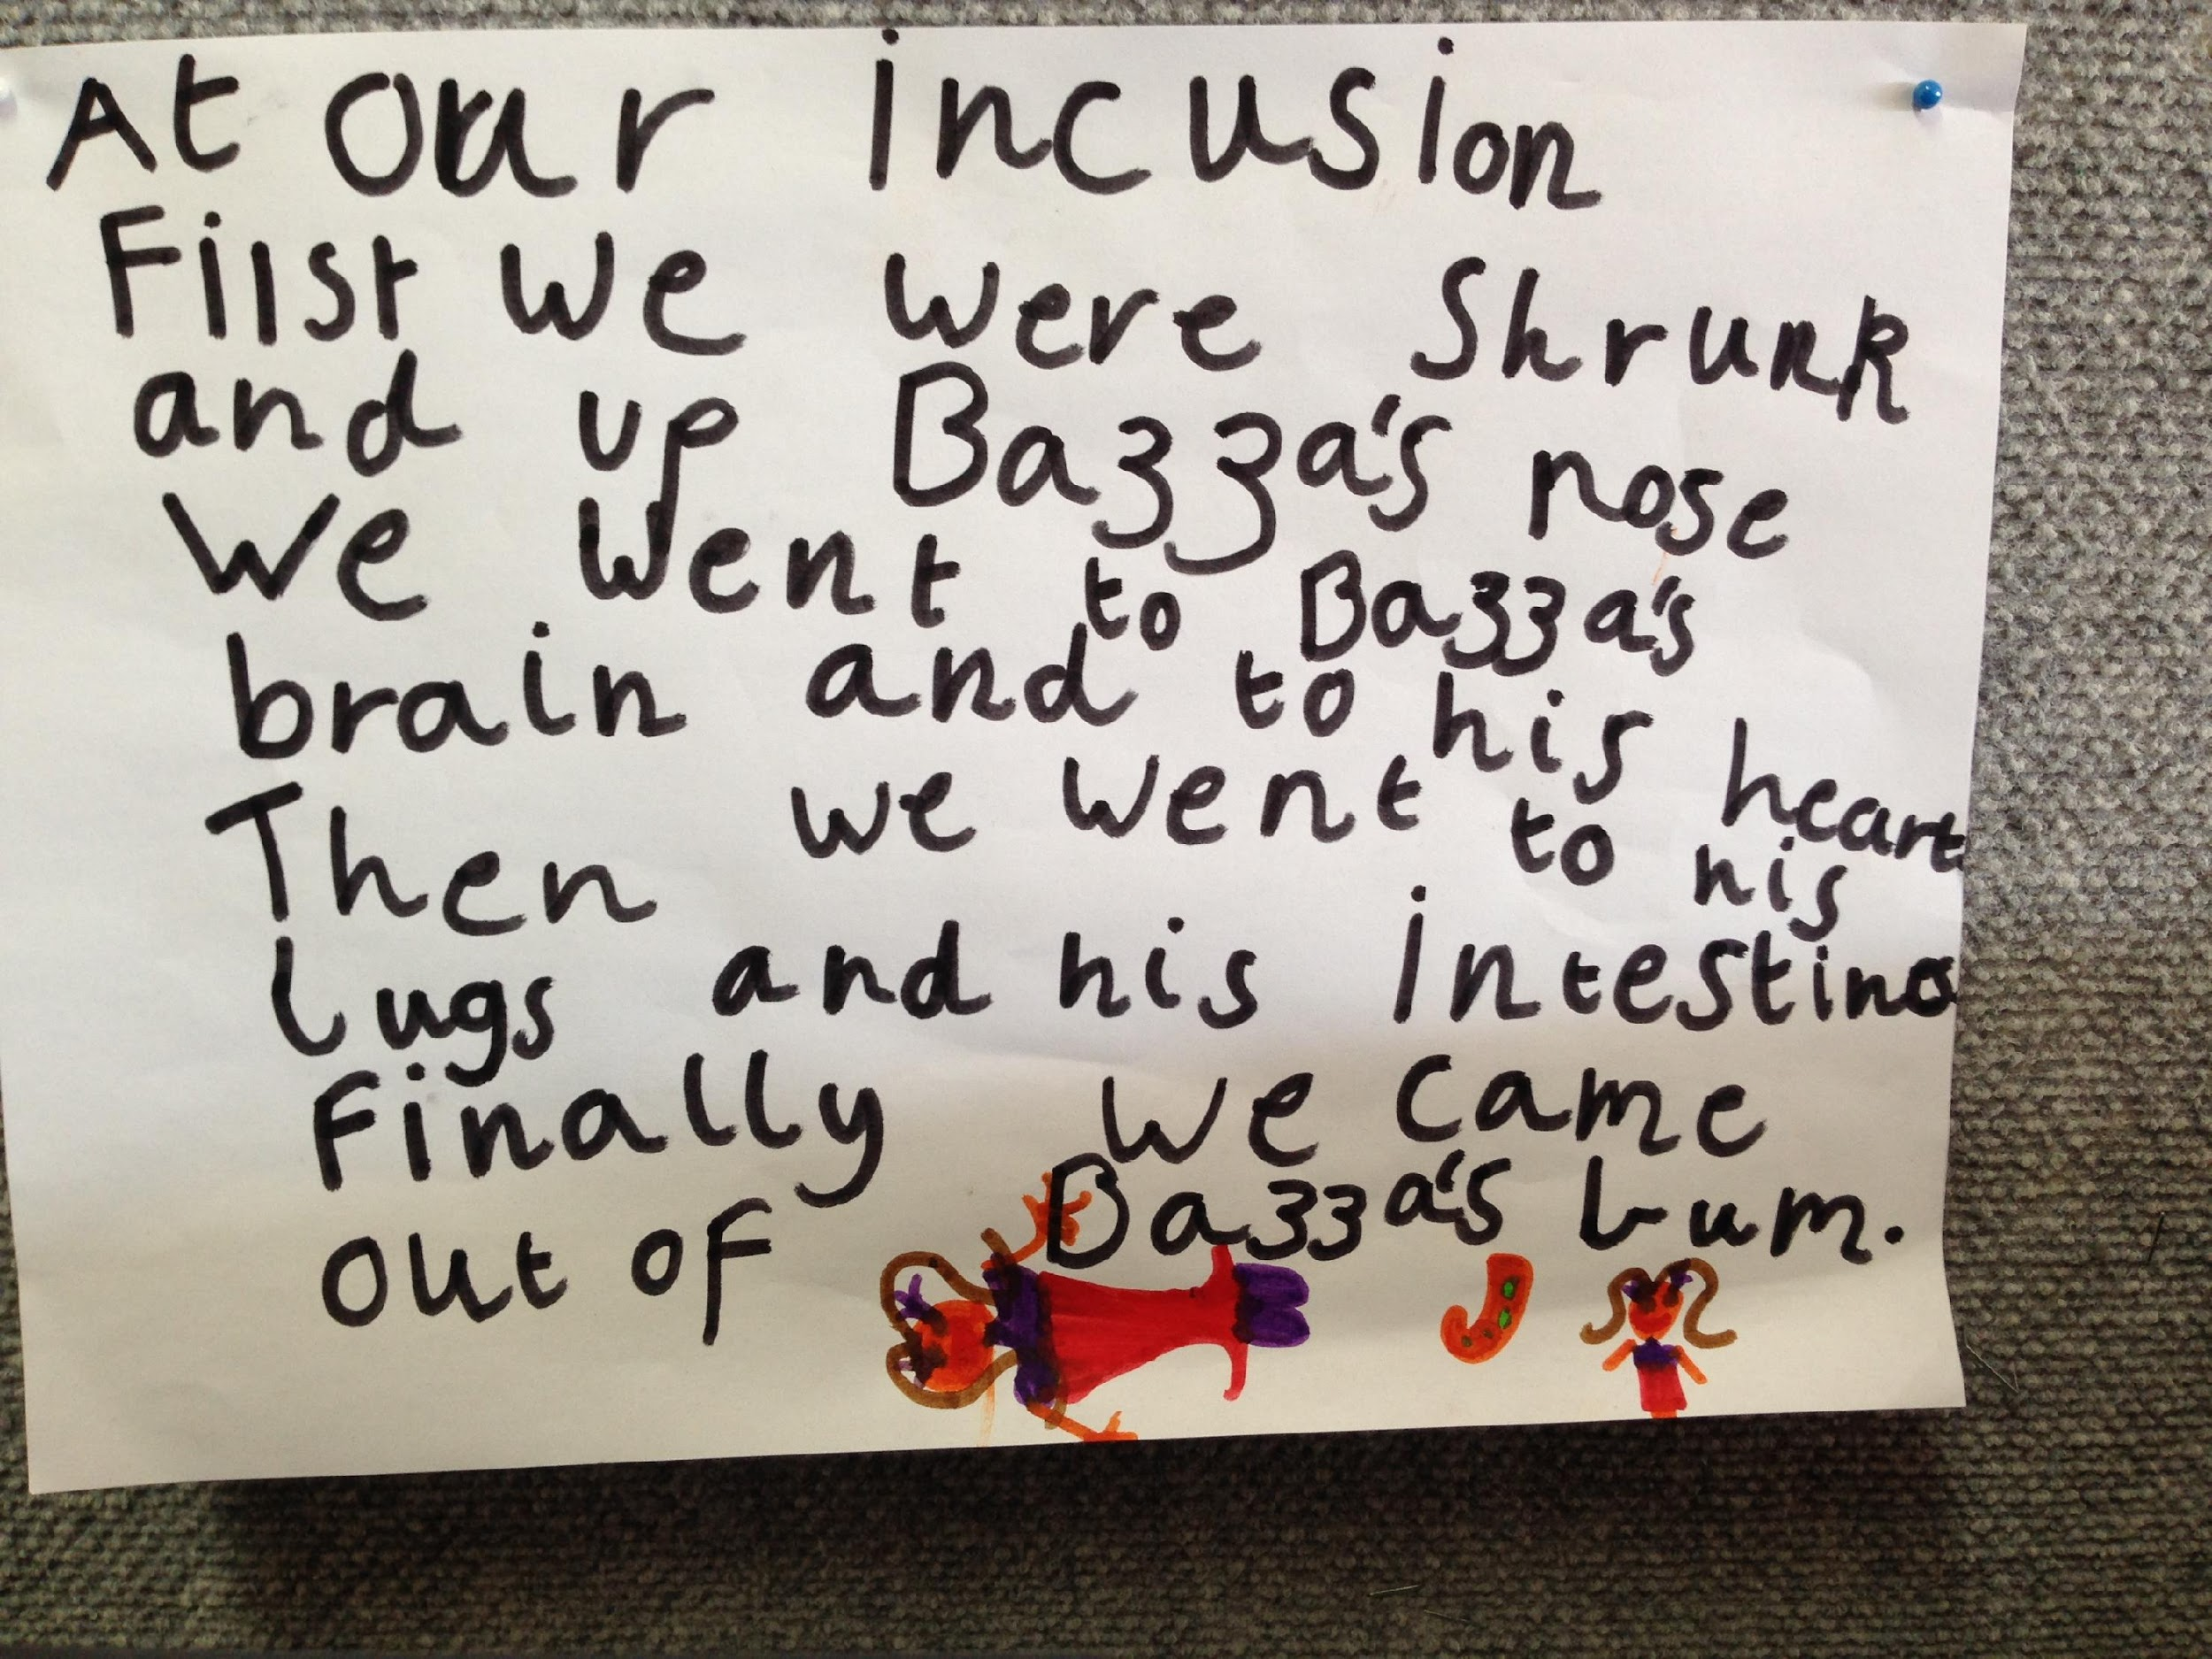 At our incusion
Fiist we were Shrunk
and up Bazza's nose
We went to Bazza's
brain and to his heart
Then we went to his
lugs and his intestines
Finally we came
out of Bazza's bum.